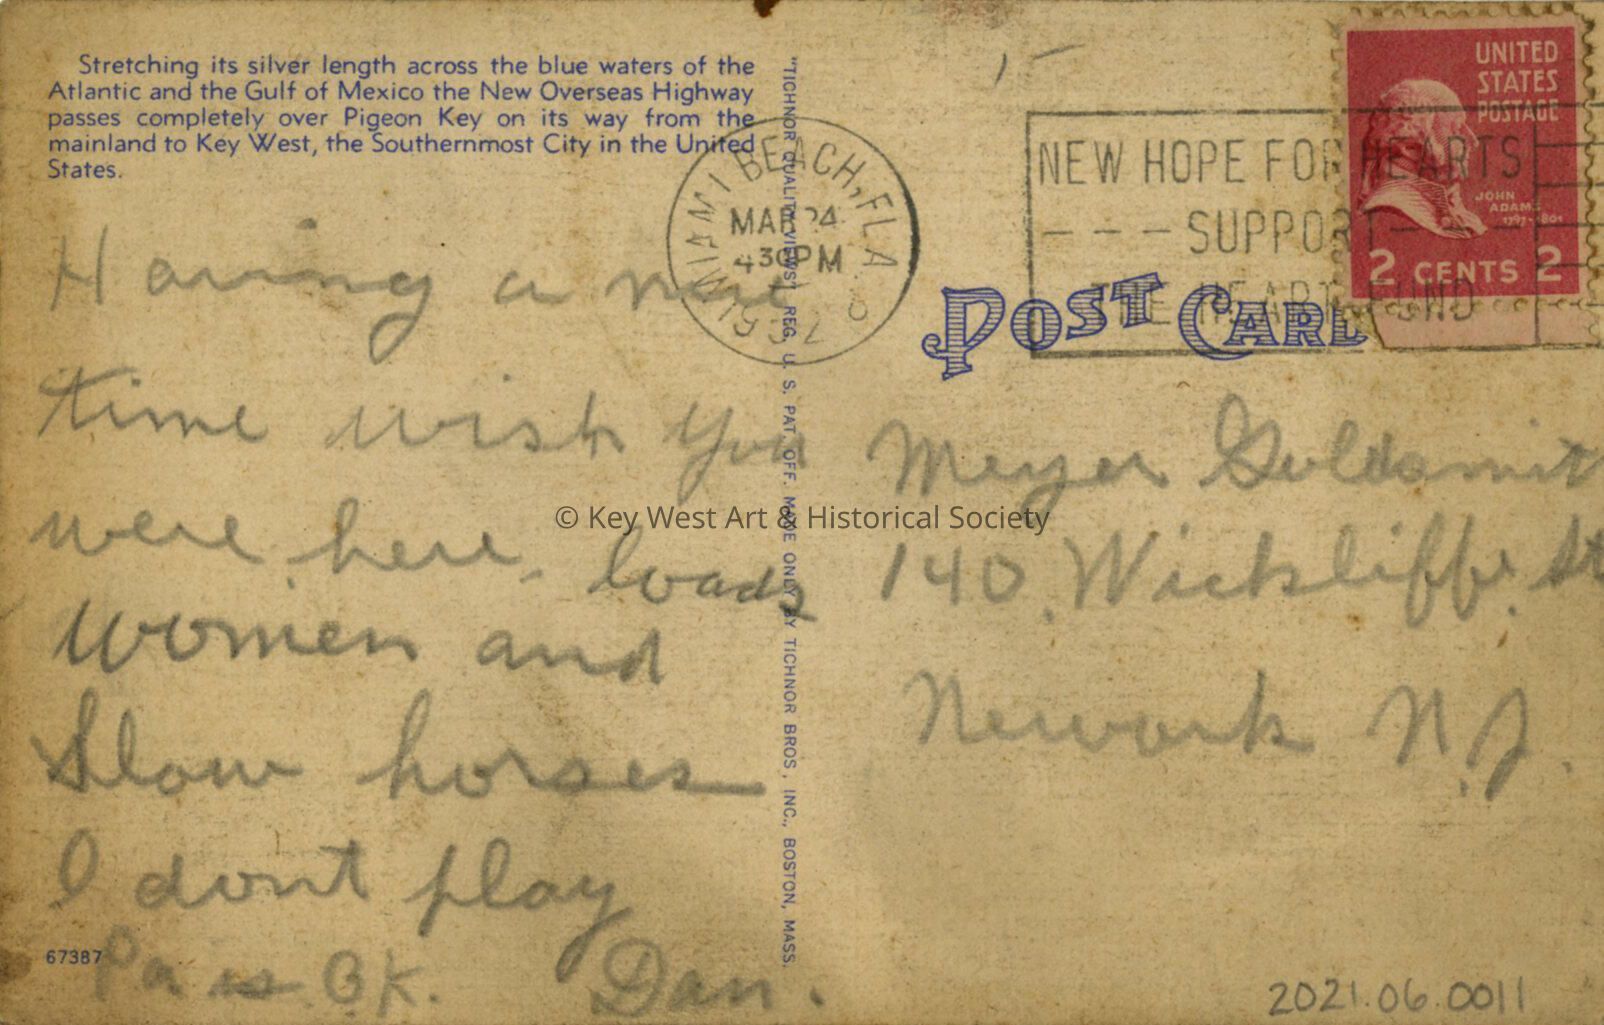 Stretching its silver length across the blue waters of the
Atlantic and the Gulf of Mexico the New Overseas Highway
passes completely over Pigeon Key on its way from the
mainland to Key West, the Southernmost City in the United
States.
Having a
time wish you
were here, loads
women and
Slow horses
I dont play
Pa is O.K. Dan.
67387
"TICHNOR QUALITY VIEWS" REG. U. S. PAT. OFF. MADE ONLY BY TICHNOR BROS., INC., BOSTON, MASS.
MIAMI BEACH, FLA.
MAR 24
430 PM
NEW HOPE FOR HEARTS
--- SUPPORT ---
THE HEART FUND
UNITED
STATES
POSTAGE
JOHN
ADAMS
1797-1801
2 CENTS 2
POST CARD
Meyer Goldsmit
140 Wickliffe St
Newark N.J.
© Key West Art & Historical Society
2021.06.0011